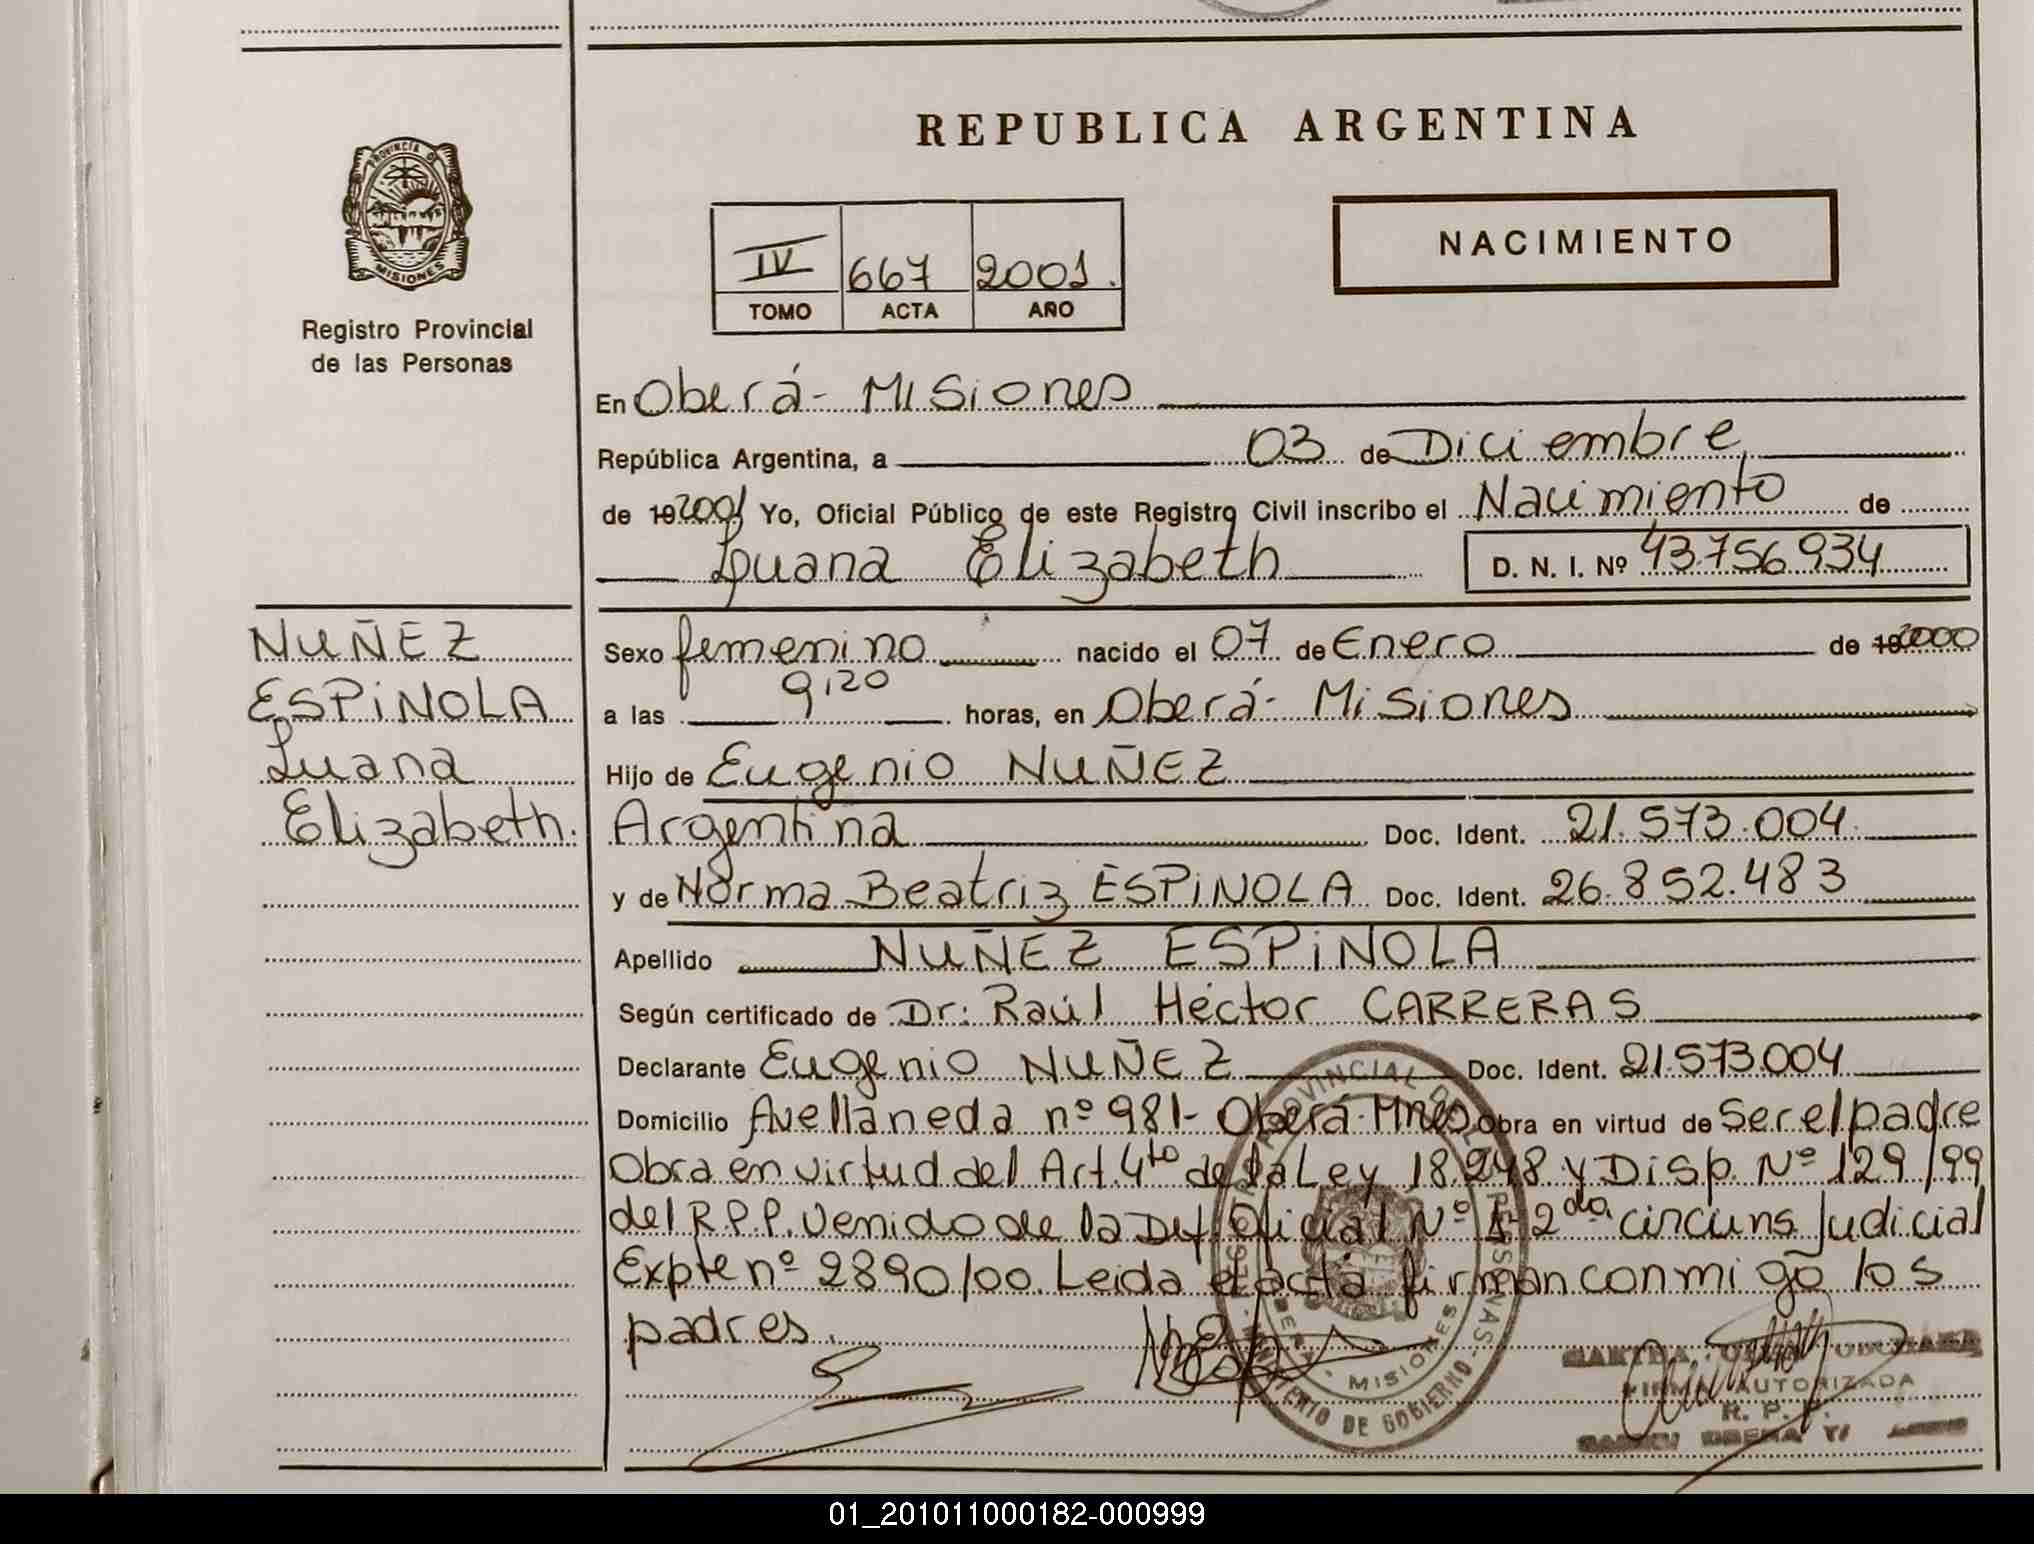 REPUBLICA ARGENTINA
PROVINCIA DE
MISIONES
Registro Provincial
de las Personas
IV 667 2001.
TOMO ACTA AÑO
NACIMIENTO
En Oberá - Misiones
República Argentina, a 03 de Diciembre
de 19 2001 Yo, Oficial Público de este Registro Civil inscribo el Nacimiento de
Luana Elizabeth D. N. I. Nº 43.756.934
NUÑEZ
ESPINOLA
Luana
Elizabeth.
Sexo femenino nacido el 07 de Enero de 19 2000
a las 9,20 horas, en Oberá - Misiones
Hijo de Eugenio NUÑEZ
Argentina Doc. Ident. 21.573.004
y de Norma Beatriz ESPINOLA Doc. Ident. 26.852.483
Apellido NUÑEZ ESPINOLA
Según certificado de Dr: Raúl Héctor CARRERAS
Declarante Eugenio NUÑEZ Doc. Ident. 21.573.004
Domicilio Avellaneda nº 981 - Oberá - Mnes Obra en virtud de Ser el padre
Obra en virtud del Art. 4to de la Ley 18.248 y Disp. Nº 129/99
del R.P.P. Venido de la Def. Oficial Nº 1 - 2da. circuns. Judicial
Expte nº 2890/00. Leida el acta firman conmigo los
padres.
PROVINCIAL DE LAS PERSONAS
MISIONES
MINISTERIO DE GOBIERNO
FIRMA AUTORIZADA
R. P. P.
01_201011000182-000999